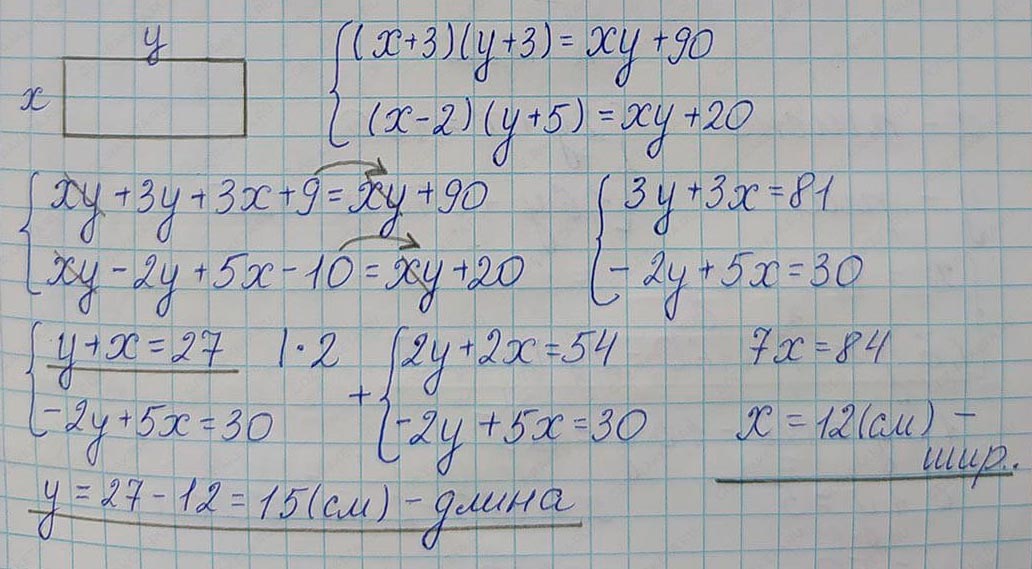 y
x
(x+3)(y+3) = xy+90
(x-2)(y+5) = xy+20
xy+3y+3x+9=xy+90
xy-2y+5x-10=xy+20
3y+3x=81
-2y+5x=30
y+x=27 |·2
-2y+5x=30
+
2y+2x=54
-2y+5x=30
7x=84
x=12(см) -
шир.
y=27-12=15(см) - длина